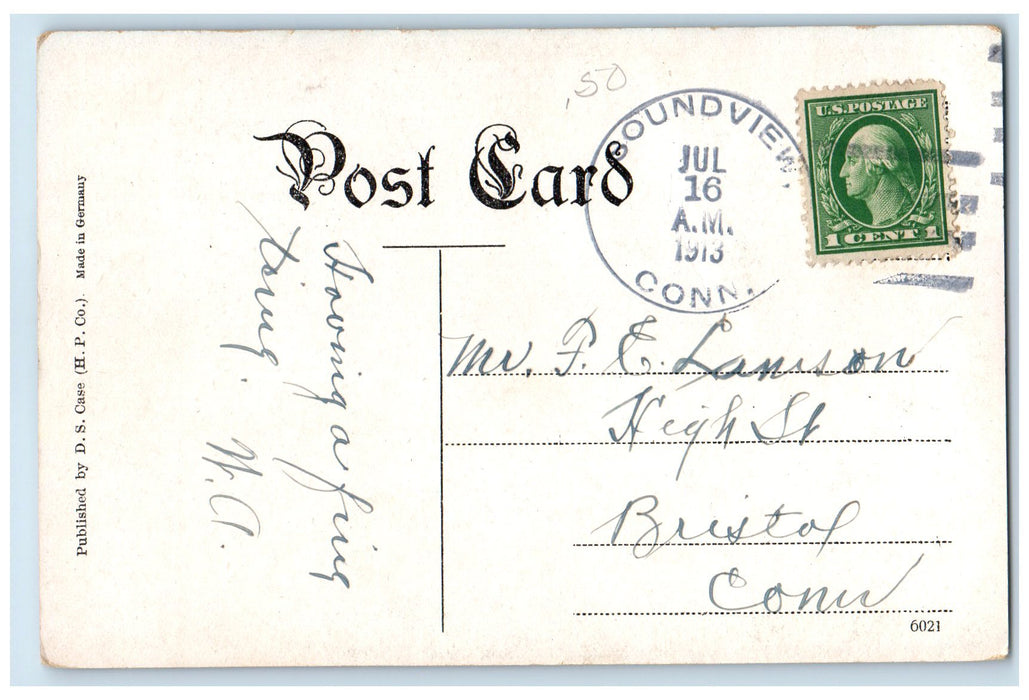 .50
Post Card
SOUNDVIEW,
JUL
16
A.M.
1913
CONN.
U.S. POSTAGE
1 CENT 1
Published by D. S. Case (H. P. Co.). Made in Germany
Having a fine
time.
W. A.
Mr. P. E. Lamson
High St
Bristol
Conn
6021